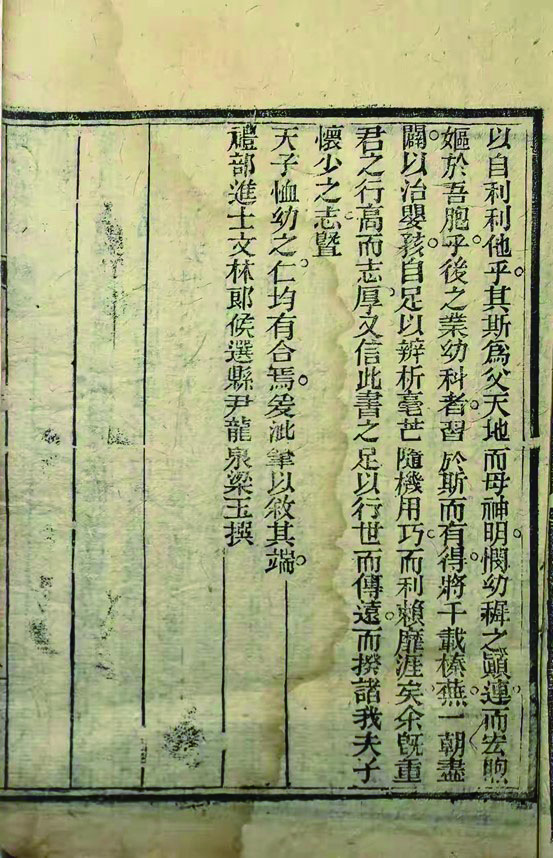 以自利利他乎其斯爲父天地而母神明憫幼穉之顚連而宏煦
嫗於吾胞乎後之業幼科者習於斯而有得將千載榛蕪一朝盡
闢以治嬰孩自足以辨析毫芒隨機用巧而利賴靡涯矣余旣重
君之行高而志厚又信此書之足以行世而傳遠而揆諸我夫子
懷少之志曁
天子恤幼之仁均有合焉爰泚筆以敘其端
禮部進士文林郞候選縣尹龍泉梁玉撰